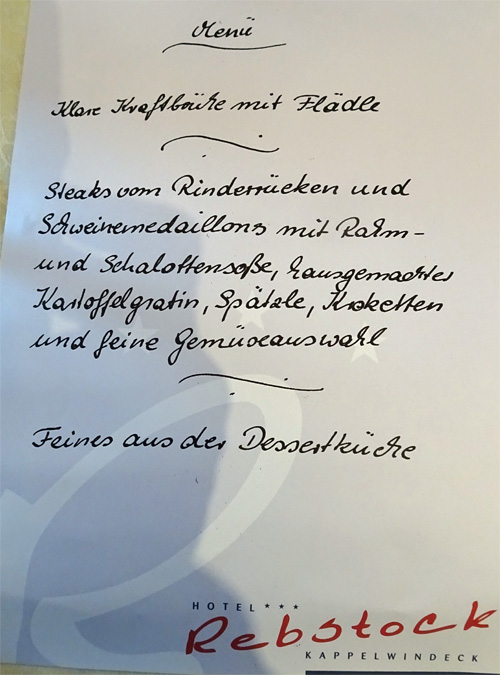 Menü
Klare Kraftbrühe mit Flädle
Steaks vom Rinderrücken und
Schweinemedaillons mit Rahm-
und Schalottensoße, hausgemachtes
Kartoffelgratin, Spätzle, Kroketten
und feine Gemüseauswahl
Feines aus der Dessertküche
HOTEL ***
Rebstock
KAPPELWINDECK